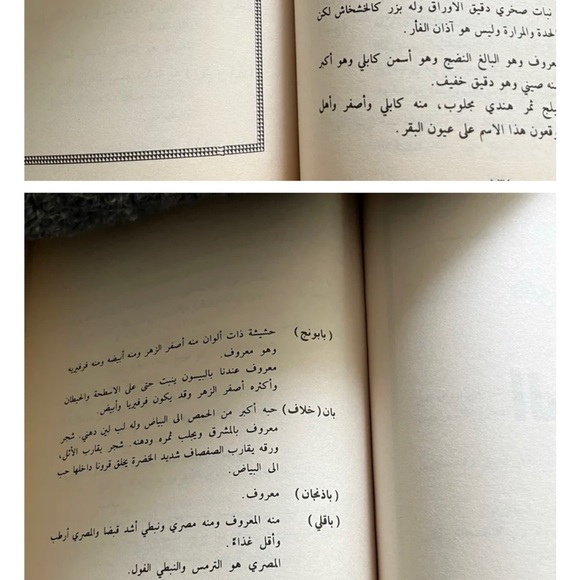 نبات صخري دقيق الاوراق وله بزر كالخشخاش لكن
الحدة والمرارة وليس هو آذان الفأر.
وهو البالغ النضج وهو أسمن كابلي وهو أكبر
صيني وهو دقيق خفيف.
ثمر هندي مجلوب، منه كابلي وأصفر وأهل
هذا الاسم على عيون البقر.
(بابونج) حشيشة ذات ألوان منه أصفر الزهر ومنه أبيضه ومنه فرفيريه
وهو معروف.
معروف عندنا بالبيسون ينبت حتى على الاسطحة والحيطان
وأكثره أصفر الزهر وقد يكون فرفيريا وأبيض.
بان (خلاف) حبه أكبر من الحمص الى البياض وله لب لين دهني. شجر
معروف بالمشرق ويجلب ثمره ودهنه. شجر يقارب الأثل،
ورقه يقارب الصفصاف شديد الخضرة يخلق قرونا داخلها حب
الى البياض.
(باذنجان) معروف.
(باقلي) منه المعروف ومنه مصري ونبطي أشد قبضا والمصري أرطب
وأقل غذاءً.
المصري هو الترمس والنبطي الفول.